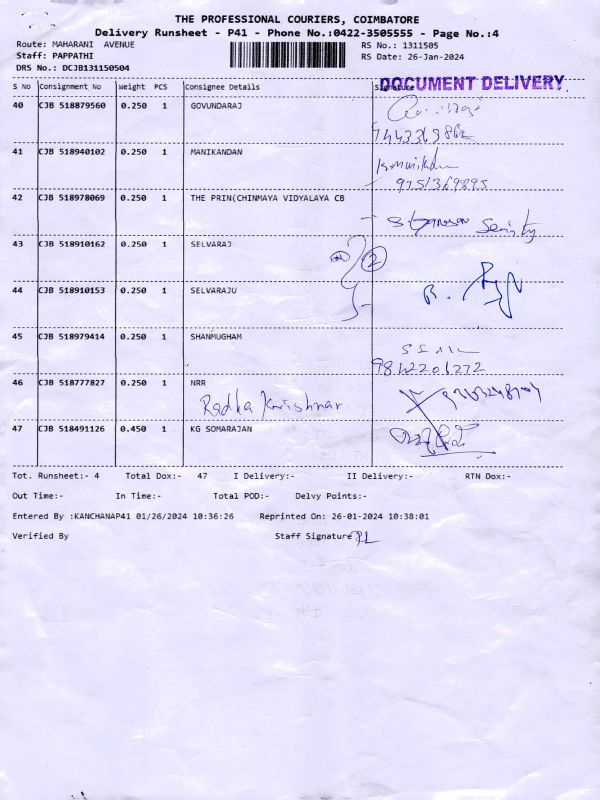 THE PROFESSIONAL COURIERS, COIMBATORE
Delivery Runsheet - P41 - Phone No.:0422-3505555 - Page No.:4
Route: MAHARANI AVENUE
RS No.: 1311505
Staff: PAPPATHI
RS Date: 26-Jan-2024
DRS No.: DCJB131150504
DOCUMENT DELIVERY
S No Consignment No Weight PCS Consignee Details Signature
40 CJB 518879560 0.250 1 GOVUNDARAJ
41 CJB 518940102 0.250 1 MANIKANDAN
9751369895
42 CJB 518978069 0.250 1 THE PRIN(CHINMAYA VIDYALAYA CB
43 CJB 518910162 0.250 1 SELVARAJ
2
44 CJB 518910153 0.250 1 SELVARAJU
45 CJB 518979414 0.250 1 SHANMUGHAM
9842206272
46 CJB 518777827 0.250 1 NRR
Radha Krishnan
47 CJB 518491126 0.450 1 KG SOMARAJAN
Tot. Runsheet:- 4 Total Dox:- 47 I Delivery:- II Delivery:- RTN Dox:-
Out Time:- In Time:- Total POD:- Delvy Points:-
Entered By :KANCHANAP41 01/26/2024 10:36:26 Reprinted On: 26-01-2024 10:38:01
Verified By Staff Signature